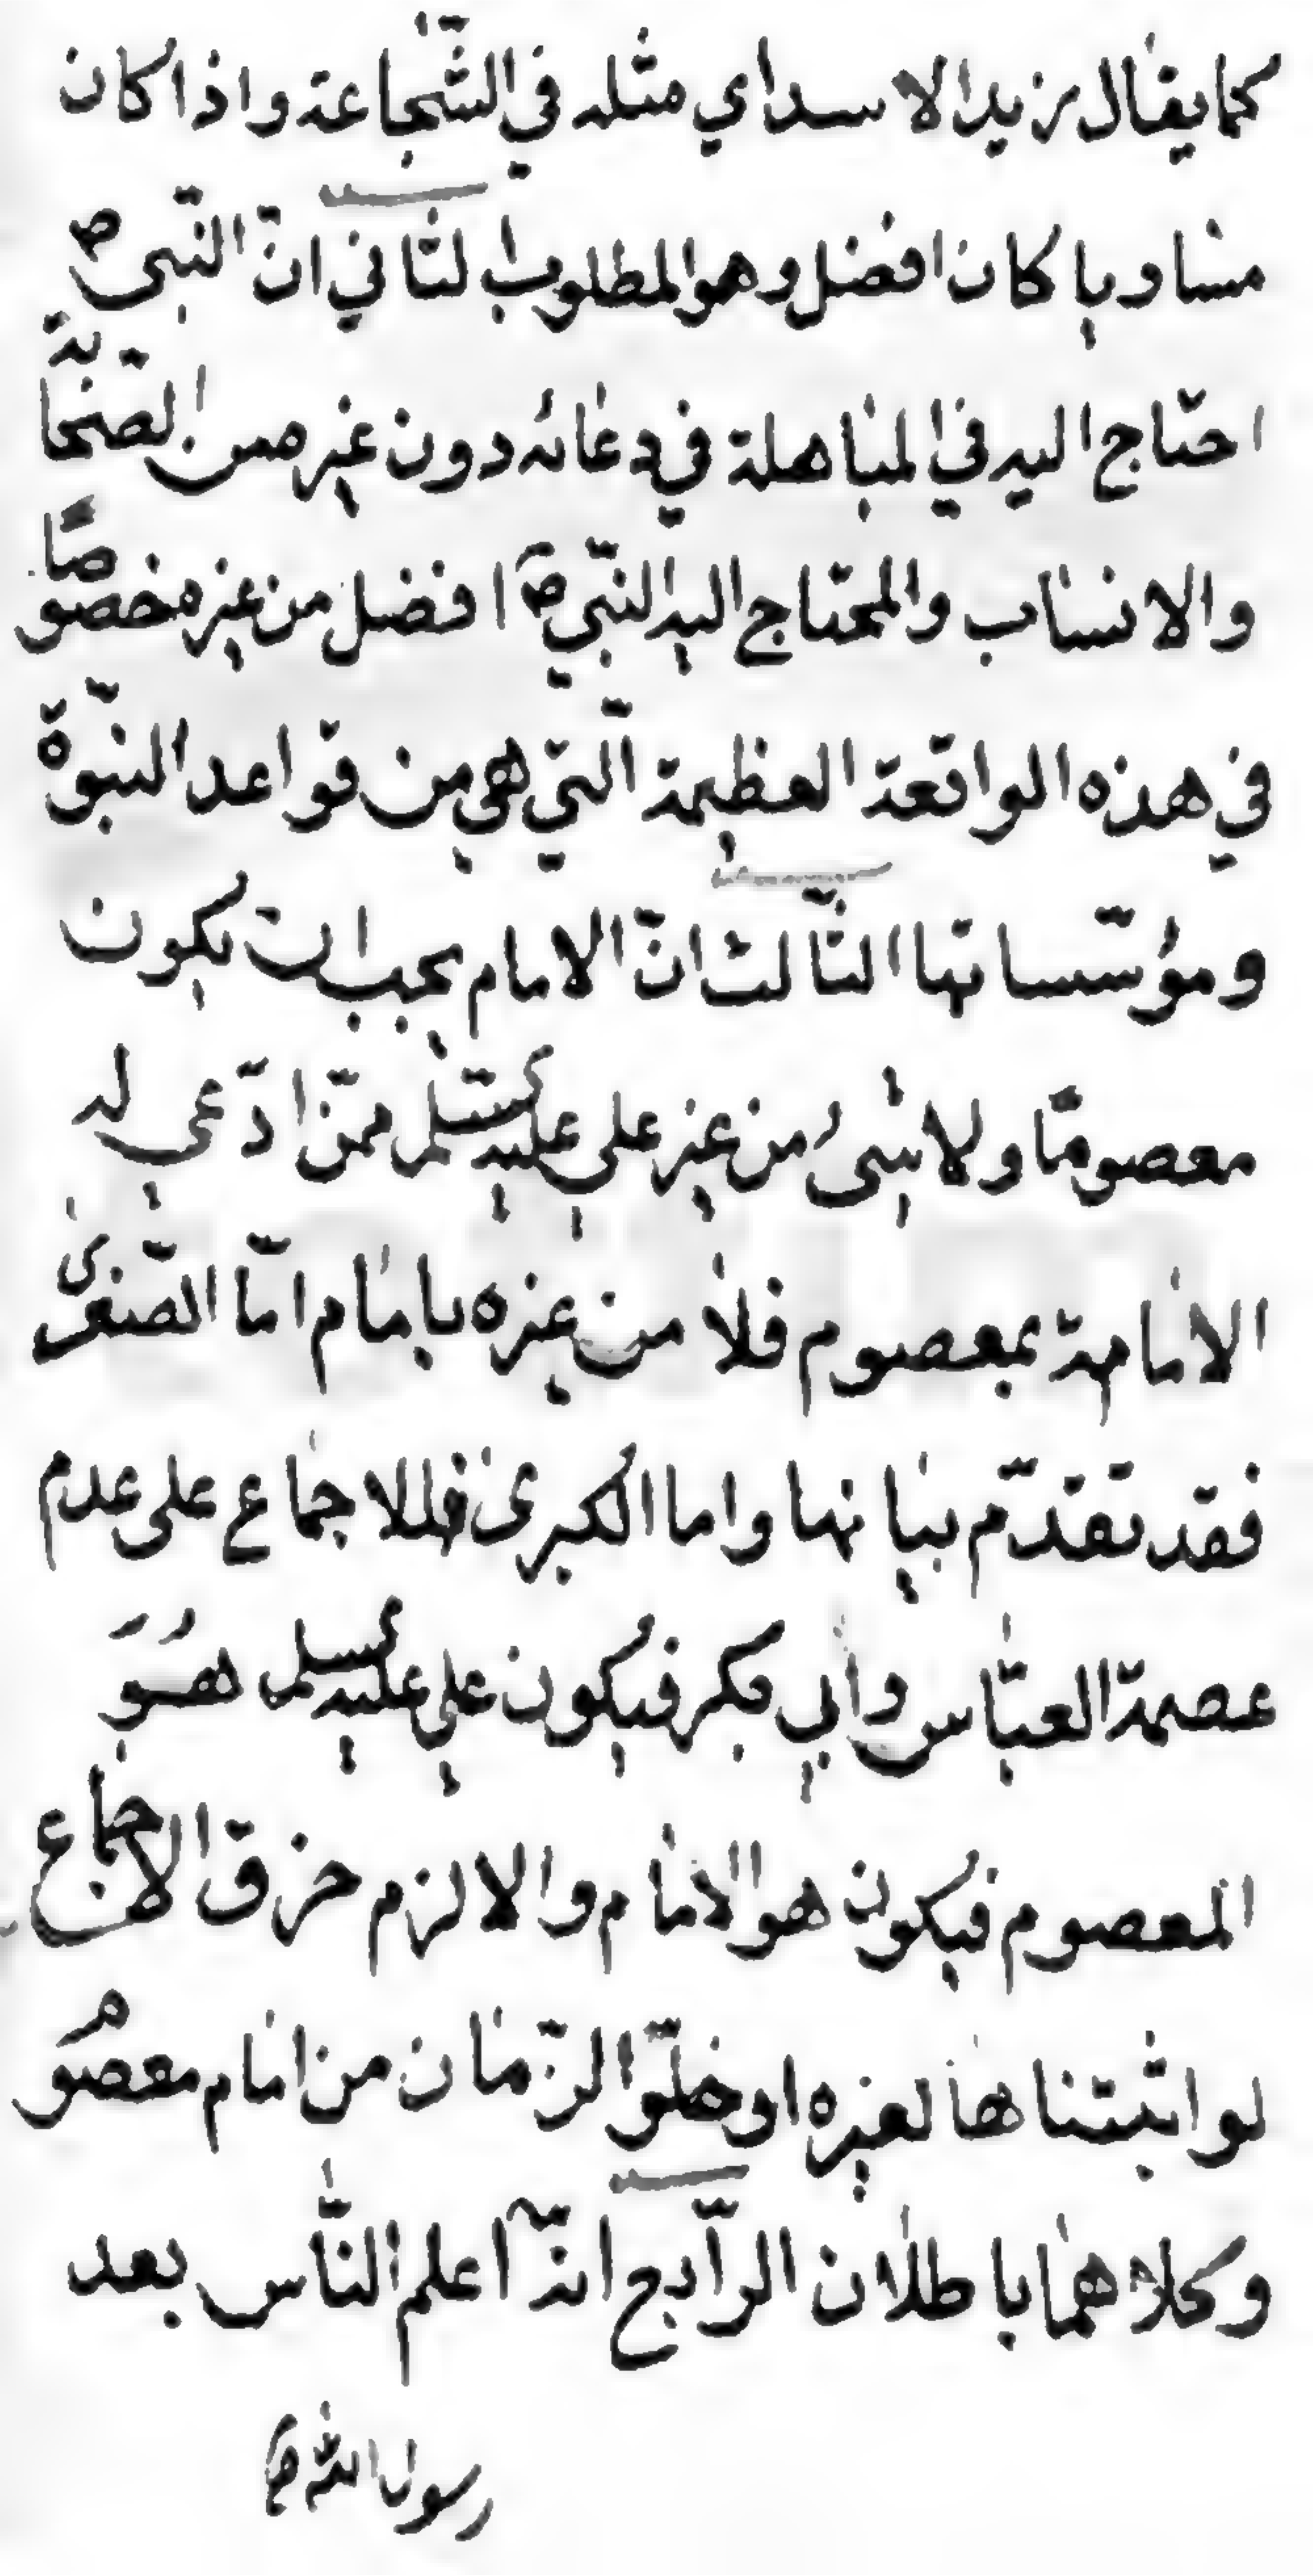 كما يقال زيد الاسد اي مثله في الشّجاعة واذا كان
مساويا كان افضل وهو المطلوب الثاني انّ النّبي ص
احتاج اليه في المباهلة في دعائه دون غيره من الصّحابة
والانساب والمحتاج اليه النّبيّ ص افضل من غيره خصوصًا
في هذه الواقعة العظيمة الّتي هي من قواعد النبوّة
ومؤسّساتها الثّالث انّ الامام يجب ان يكون
معصومًا ولا شيء من غير علي عليه السلم ممّن ادّعي له
الامامة بمعصوم فلا من غيره بامام امّا الصّغرى
فقد تقدّم بيانها واما الكبرى فللاجماع على عدم
عصمة العبّاس وابي بكر فيكون علي عليه السلم هُوَ
المعصوم فيكون هو الامام والا لزم خرق الاجماع
لو اثبتناها لغيره او خلوّ الزّمان من امام معصوم
وكلاهما باطلان الرّابع انّه اعلم النّاس بعد
رسول الله ص